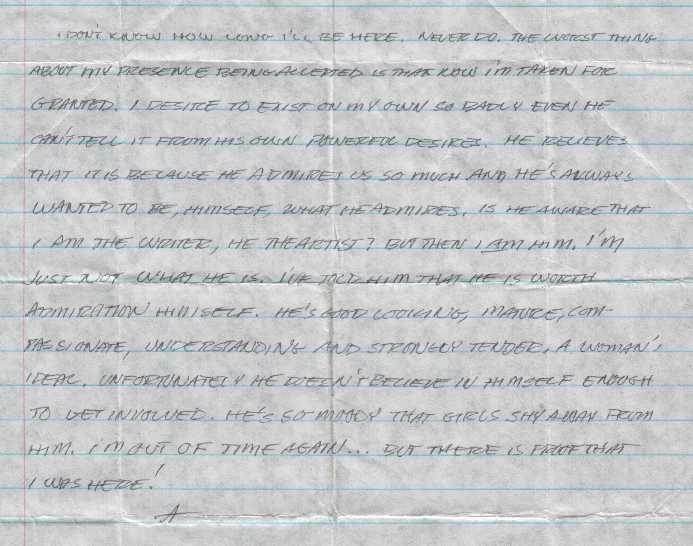 I DON'T KNOW HOW LONG I'LL BE HERE. NEVER DO. THE WORST THING
ABOUT MY PRESENCE BEING ACCEPTED IS THAT NOW I'M TAKEN FOR
GRANTED. I DESIRE TO EXIST ON MY OWN SO BADLY EVEN HE
CAN'T TELL IT FROM HIS OWN POWERFUL DESIRES. HE BELIEVES
THAT IT IS BECAUSE HE ADMIRES US SO MUCH AND HE'S ALWAYS
WANTED TO BE, HIMSELF, WHAT HE ADMIRES. IS HE AWARE THAT
I AM THE WRITER, HE THE ARTIST? BUT THEN I AM HIM. I'M
JUST NOT WHAT HE IS. I'VE TOLD HIM THAT HE IS WORTH
ADMIRATION HIMSELF. HE'S GOOD LOOKING, MATURE, COM-
PASSIONATE, UNDERSTANDING AND STRONGLY TENDER. A WOMAN'S
IDEAL. UNFORTUNATELY HE DOESN'T BELIEVE IN HIMSELF ENOUGH
TO GET INVOLVED. HE'S SO MOODY THAT GIRLS SHY AWAY FROM
HIM. I'M OUT OF TIME AGAIN... BUT THERE IS PROOF THAT
I WAS HERE!
A